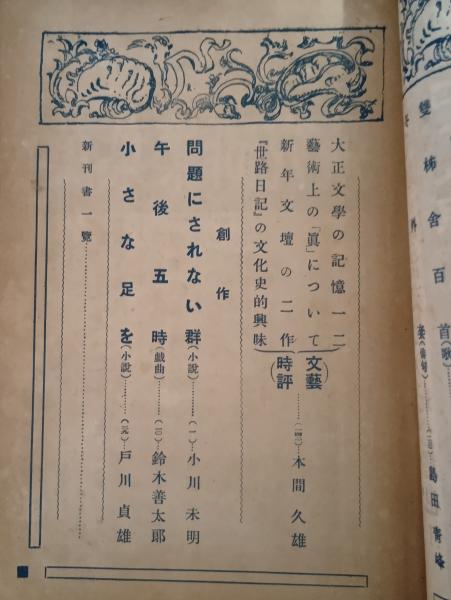 雙柿舍百首(歌)
(俳句)島田青峰
大正文學の記憶一二
藝術上の「眞」について
新年文壇の二作
『世路日記』の文化史的興味
(文藝時評)………(一四)…本間久雄
創作
問題にされない群(小說)………(一)…小川未明
午後五時(戲曲)………(二〇)…鈴木善太郞
小さな足を(小說)………(元)…戶川貞雄
新刊書一覽………………